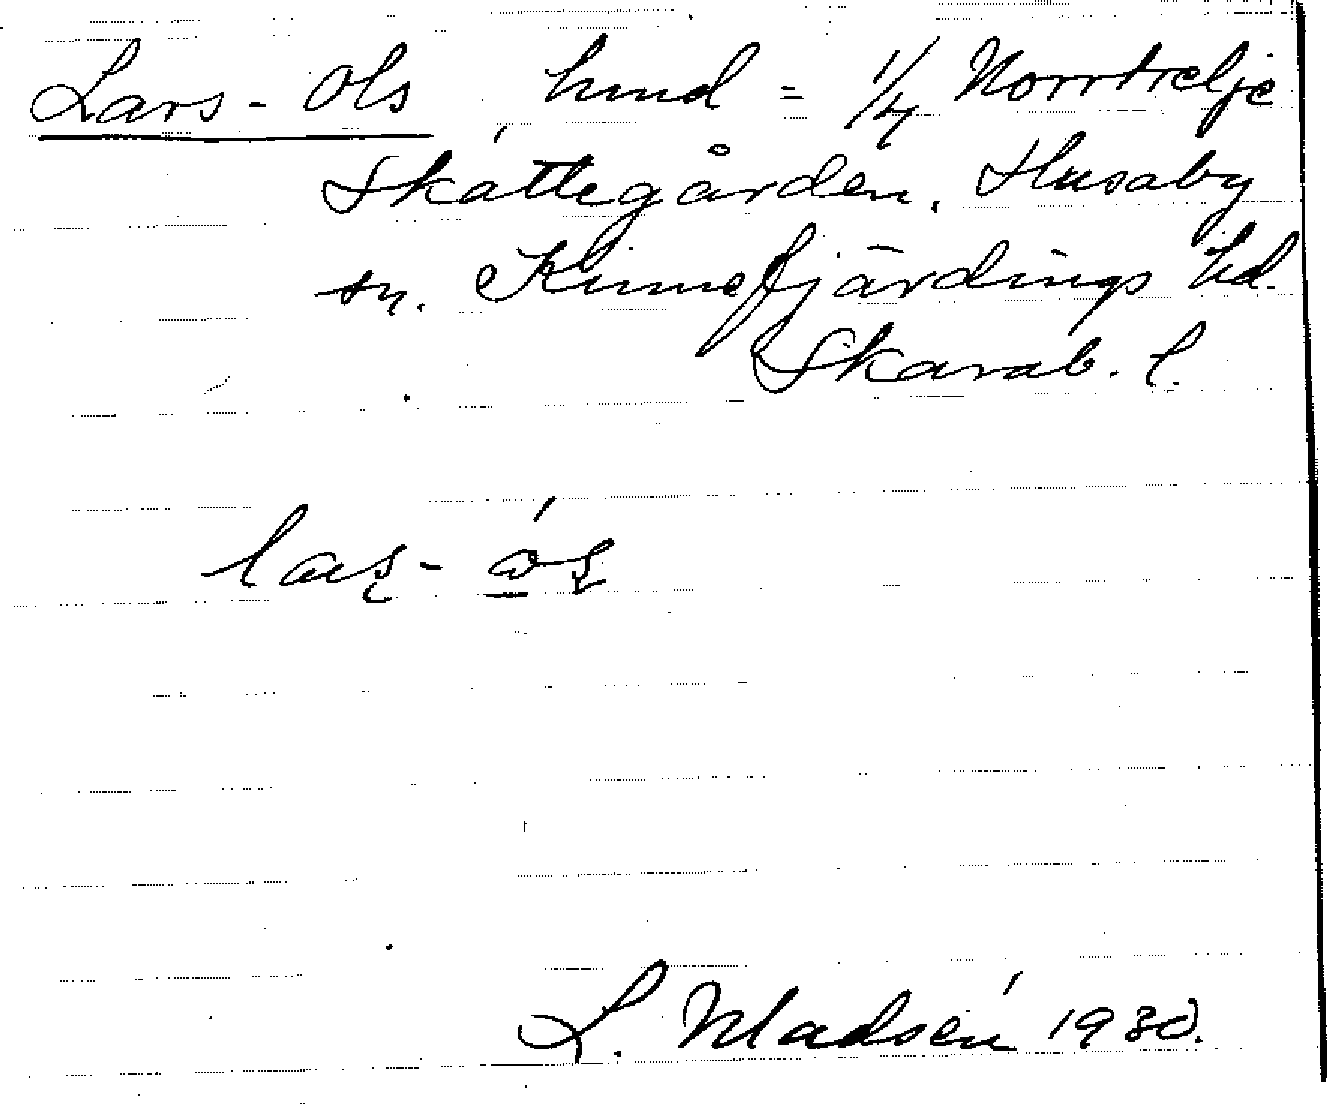 Lars-Ols hmd = 1/4 Norrtelje
Skattegården, Husaby
sn. Kinnefjärdings hd.
Skarab. l.
las-
L. Madsén 1930.